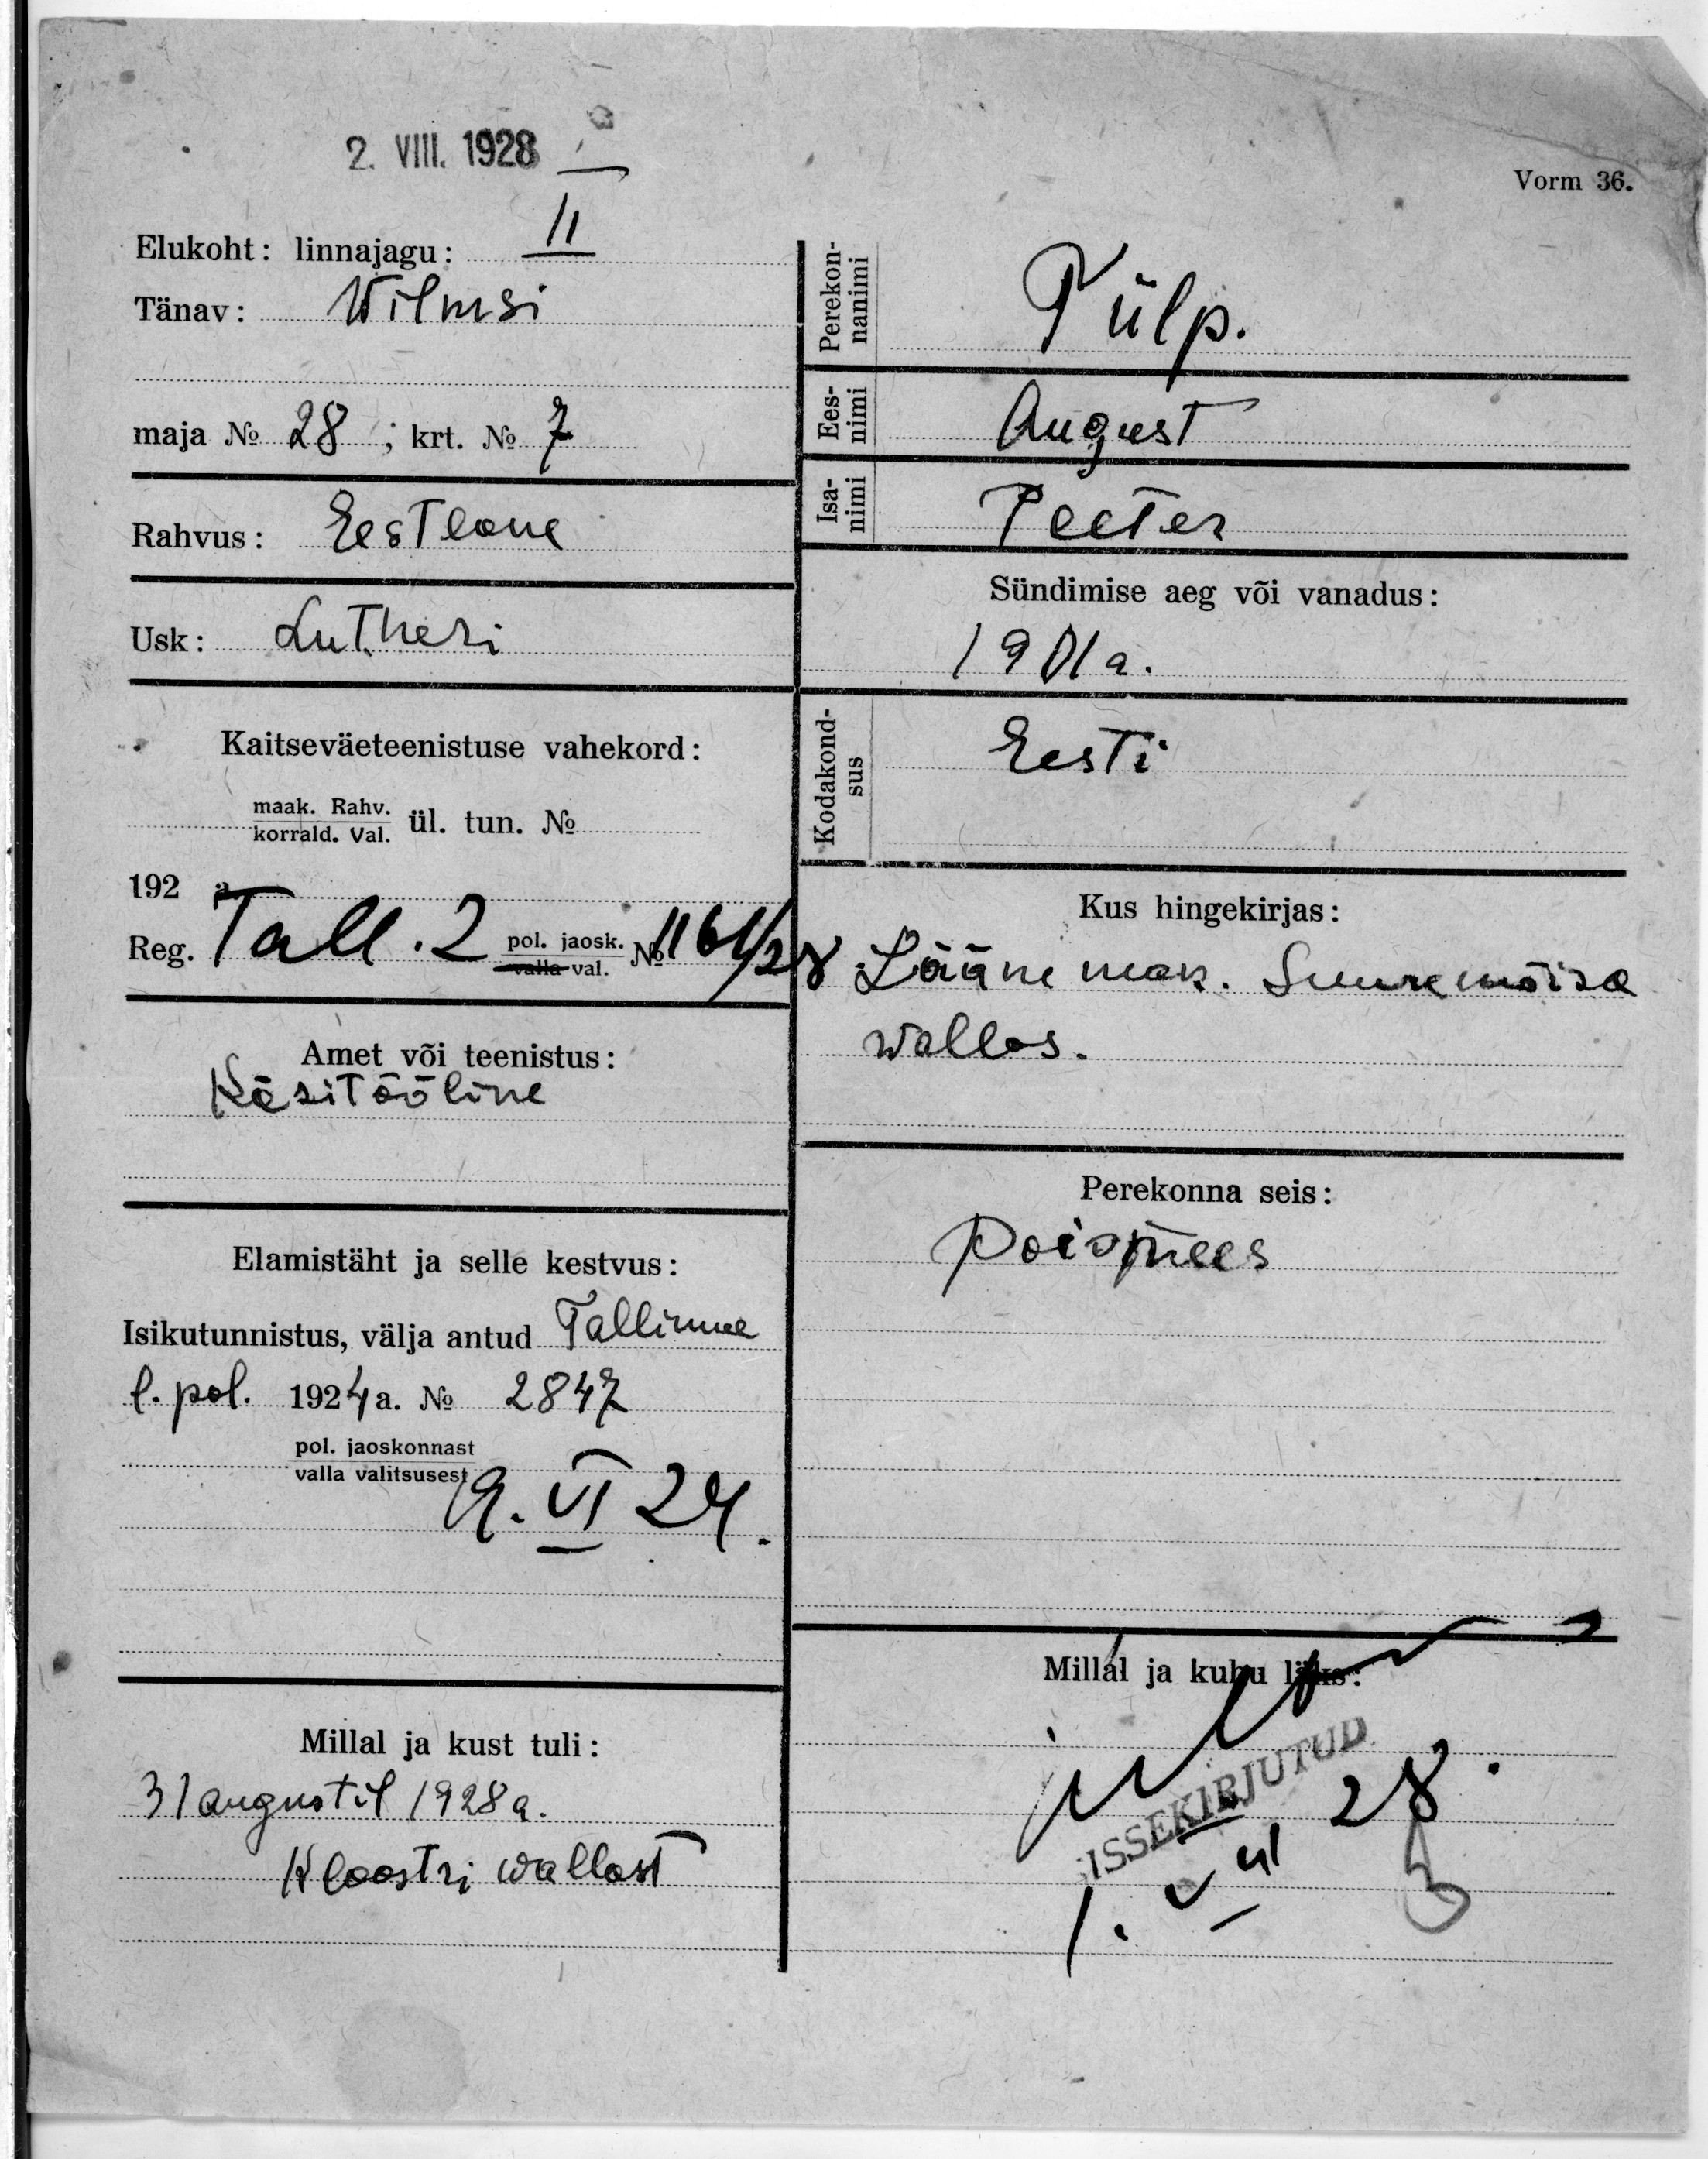 2. VIII. 1928
Vorm 36.
Elukoht: linnajagu: II
Tänav: Wilmsi
maja № 28; krt. № 7
Rahvus: Eestlane
Usk: Lutheri
Kaitseväeteenistuse vahekord:
maak. Rahv.
korrald. Val. ül. tun. №
192 a
Reg. Tall. 2 pol. jaosk. № 1161/28
valla val.
Amet või teenistus:
Käsitööline
Elamistäht ja selle kestvus:
Isikutunnistus, välja antud Tallinna
l. pol. 1924 a. № 2847
pol. jaoskonnast
valla valitsusest 9. VI 24.
Millal ja kust tuli:
31 augustil 1928 a.
Kloostri wallast
Perekon-
nanimi
Pülp.
Ees-
nimi
August
Isa-
nimi
Peeter
Sündimise aeg või vanadus:
1901 a.
Kodakond-
sus
Eesti
Kus hingekirjas:
Lääne mak. Suuremõisa
wallas.
Perekonna seis:
poismees
Millal ja kuhu läks:
ISSEKIRJUTUD
1. VIII 28.